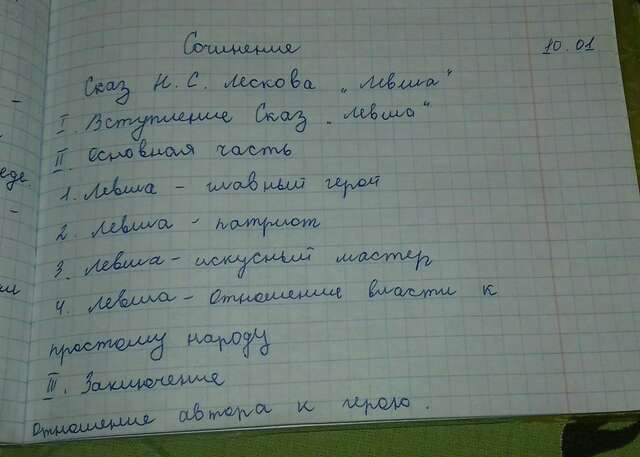 Сочинение
10.01
Сказ Н. С. Лескова „Левша“
I. Вступление Сказ „Левша“
II. Основная часть
1. Левша - главный герой
2. Левша - патриот
3. Левша - искусный мастер
4. Левша - Отношение власти к
простому народу
III. Заключение
отношение автора к герою.